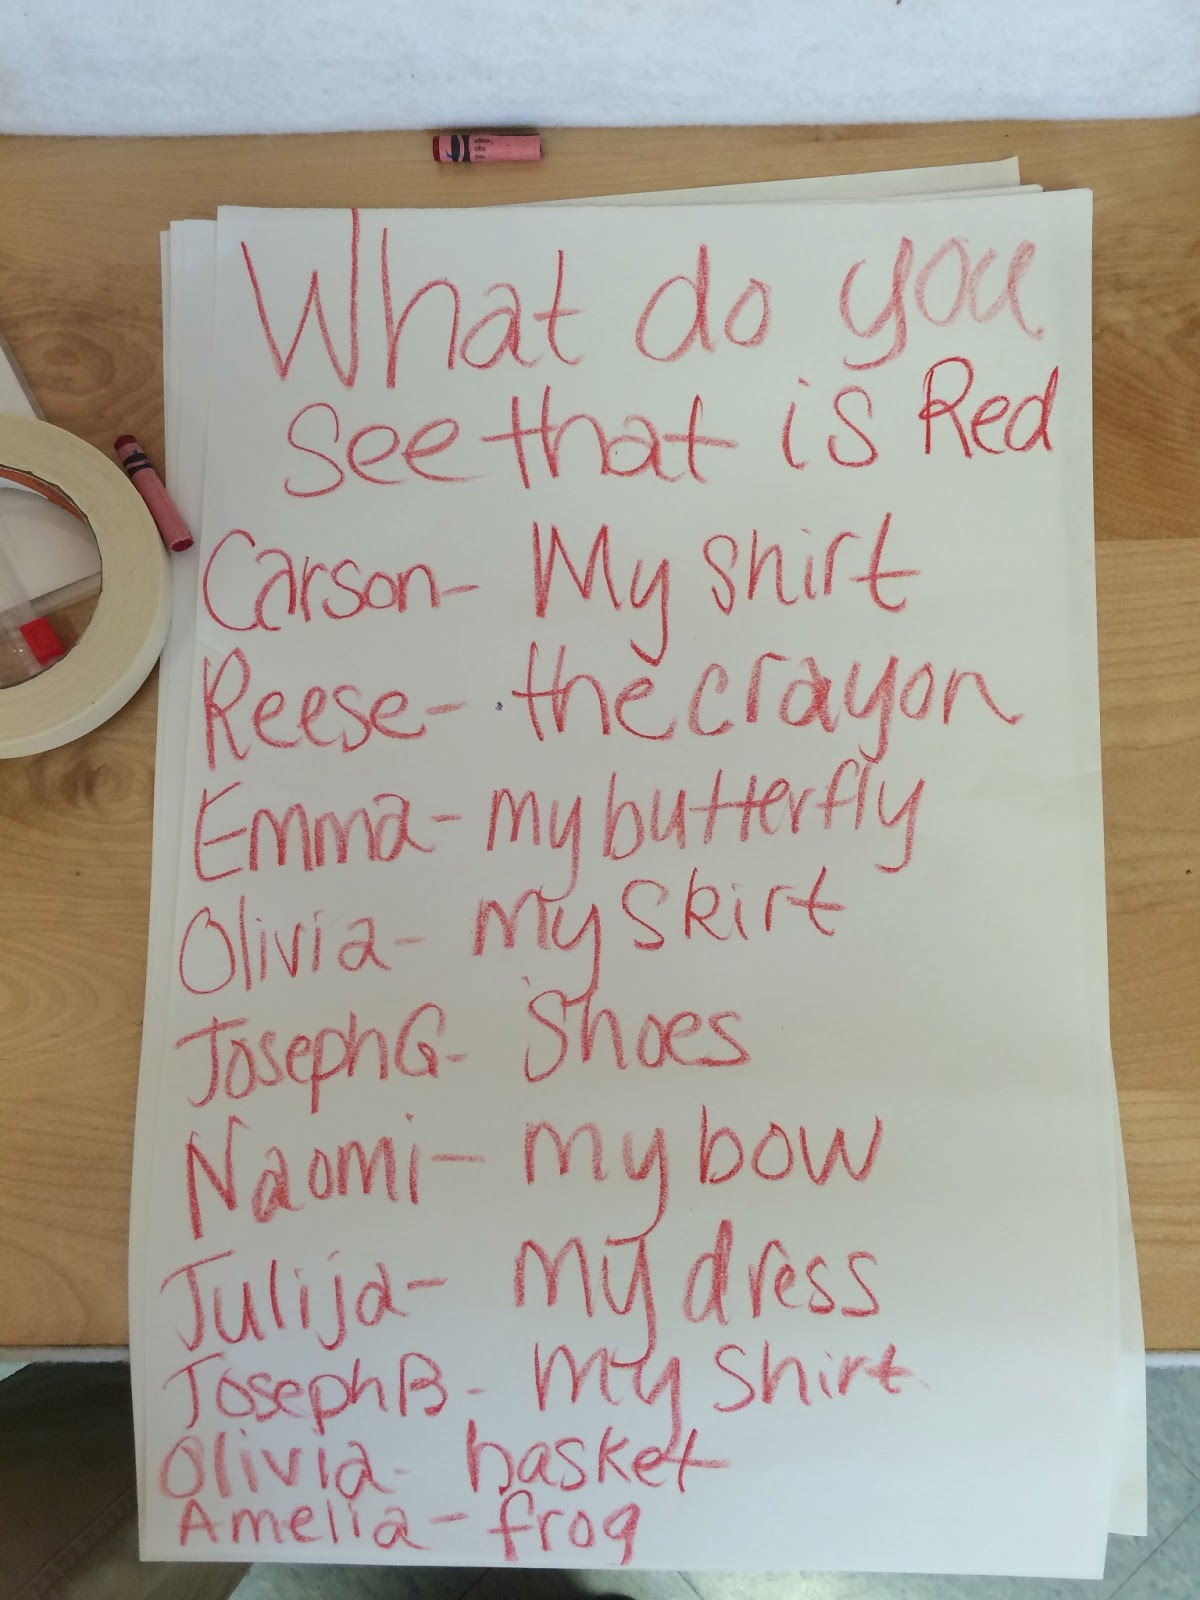 What do you
see that is Red
Carson- My shirt
Reese- the crayon
Emma- my butterfly
Olivia- my skirt
Joseph G- Shoes
Naomi- my bow
Julija- my dress
Joseph B- my shirt
Olivia- basket
Amelia- frog